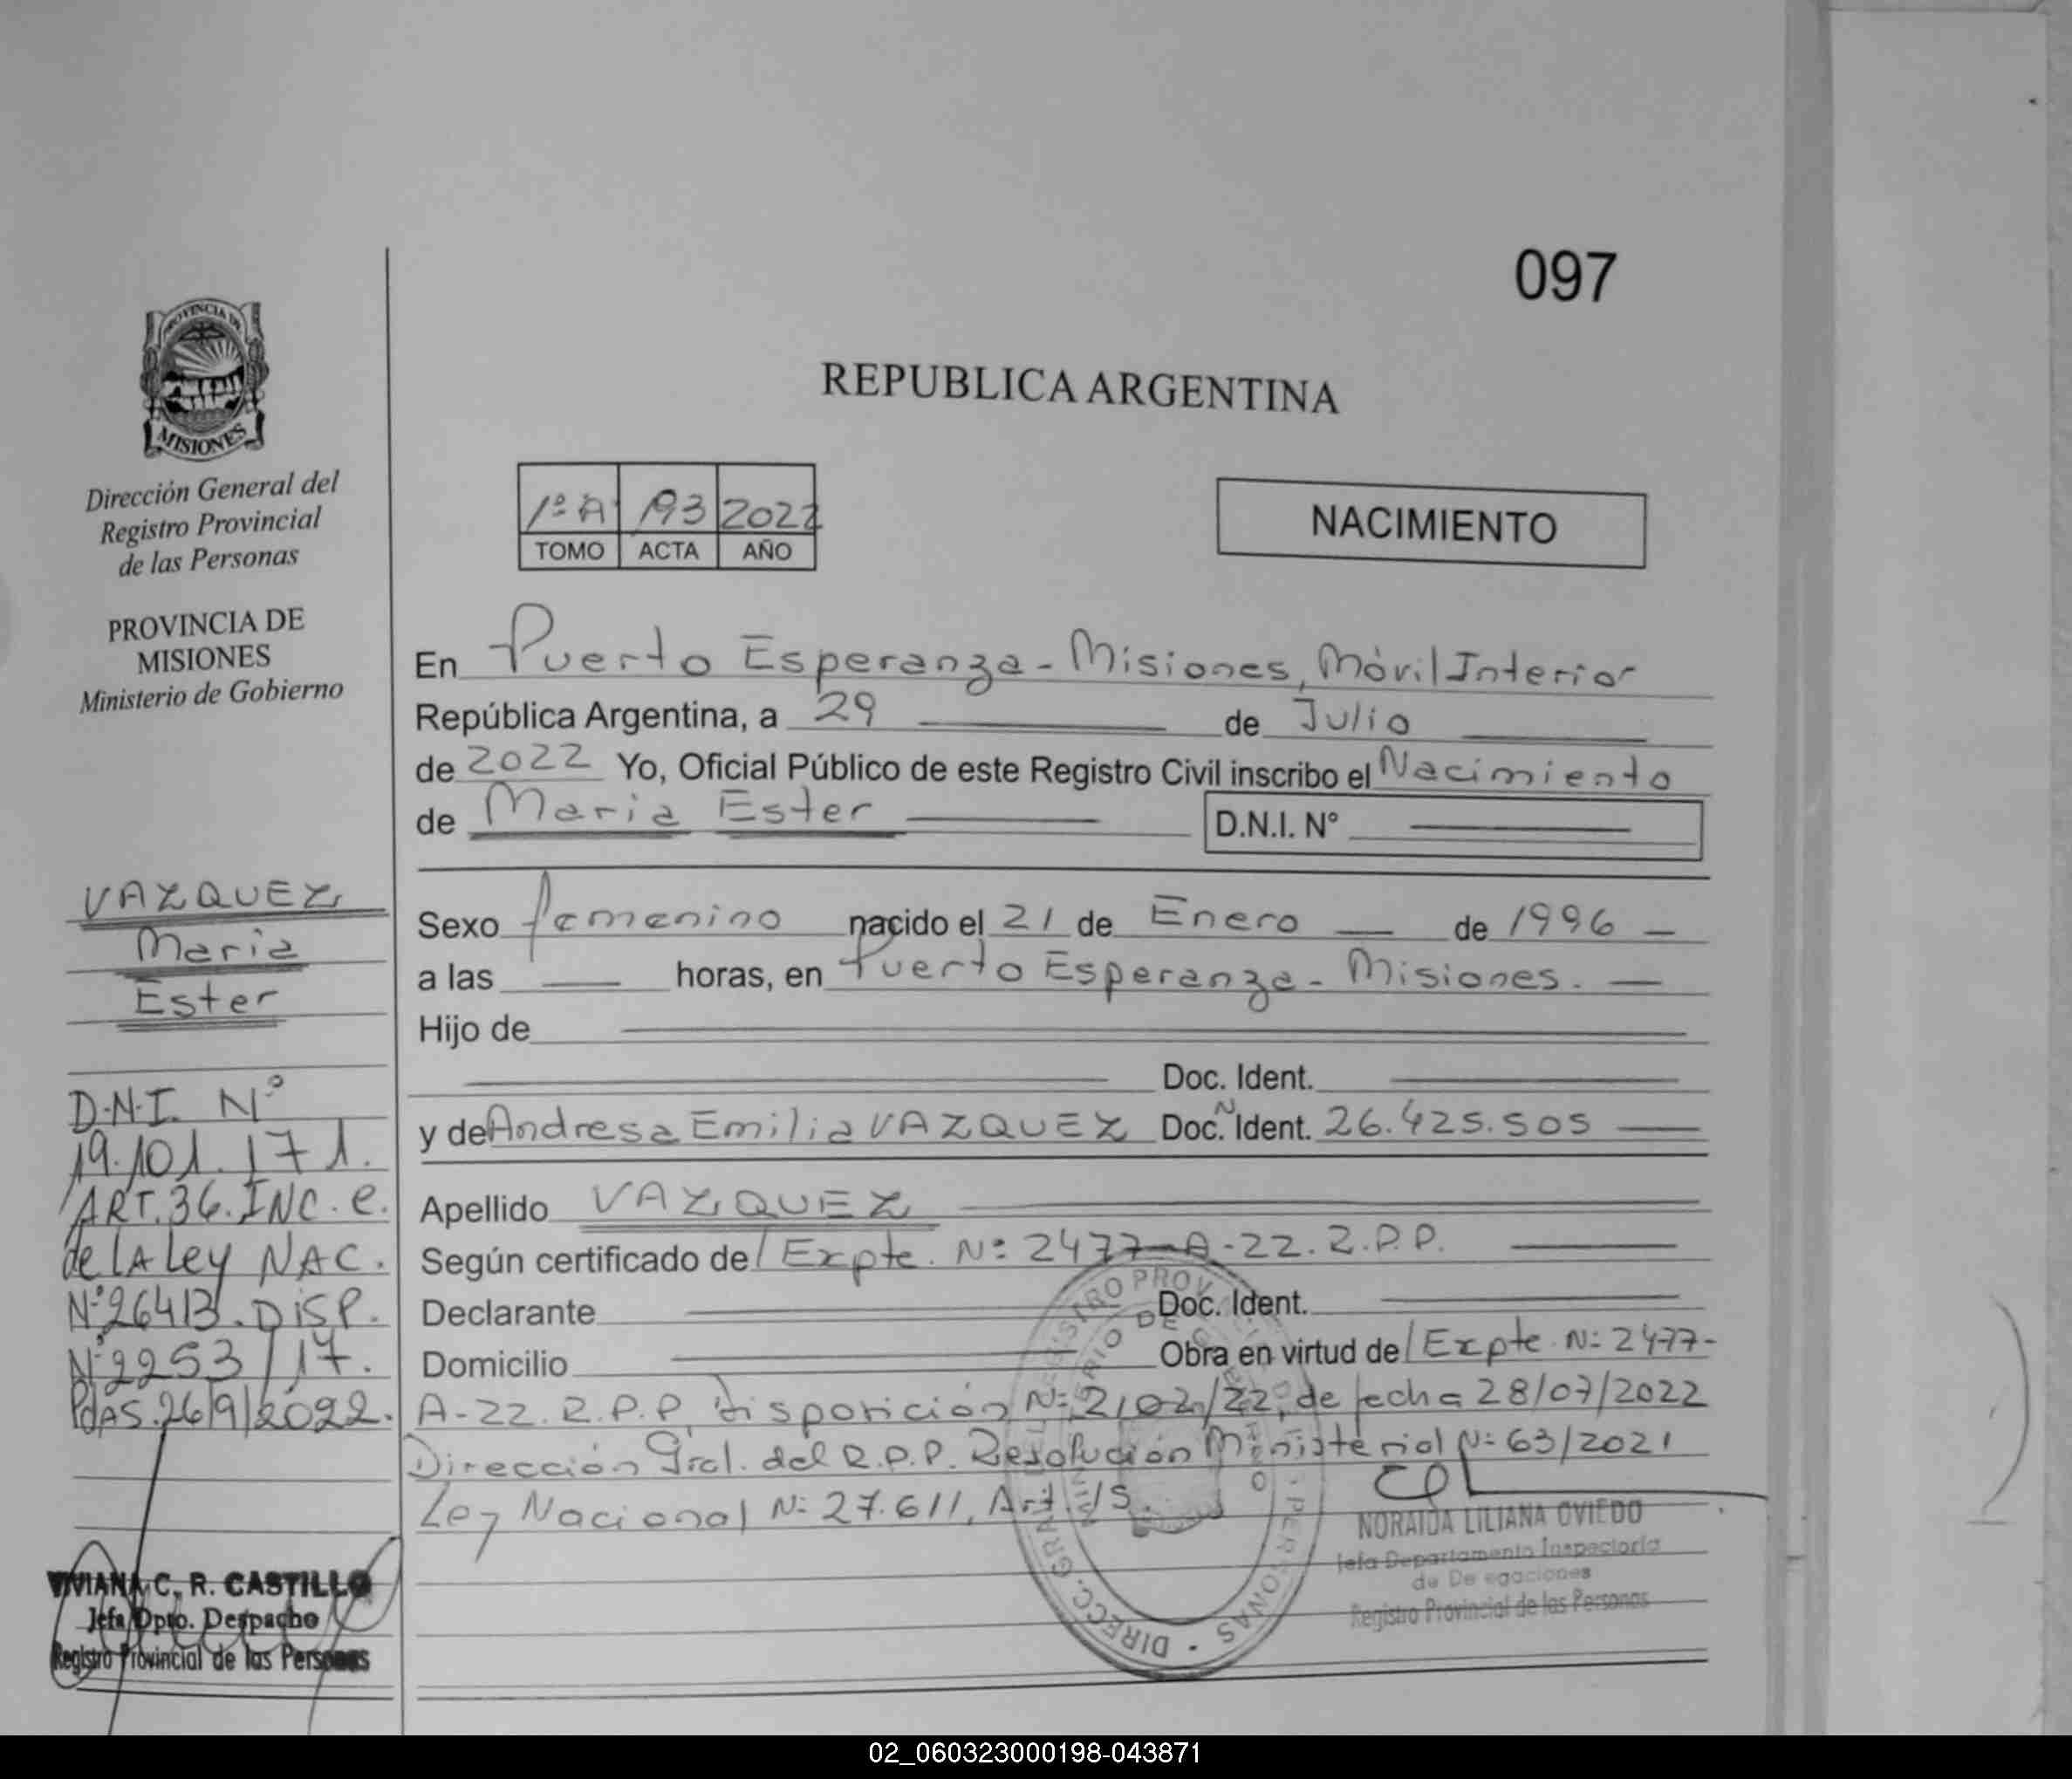 097
REPUBLICA ARGENTINA
PROVINCIA DE
MISIONES
Dirección General del
Registro Provincial
de las Personas
PROVINCIA DE
MISIONES
Ministerio de Gobierno
1º A 193 2022
TOMO ACTA AÑO
NACIMIENTO
En Puerto Esperanza - Misiones, Móvil Interior
República Argentina, a 29 de Julio
de 2022 Yo, Oficial Público de este Registro Civil inscribo el Nacimiento
de Maria Ester D.N.I. N°
Sexo femenino nacido el 21 de Enero de 1996
a las horas, en Puerto Esperanza - Misiones.
Hijo de
Doc. Ident.
y de Andresa Emilia VAZQUEZ Doc. Ident. 26.425.505
Apellido VAZQUEZ
Según certificado de/ Expte. Nº 2477-A-22.R.P.P.
Declarante Doc. Ident.
Domicilio Obra en virtud de/ Expte Nº 2477-
A-22. R.P.P. Disposición Nº 2102/22, de fecha 28/07/2022
Dirección Gral. del R.P.P. Resolución Ministerial Nº 63/2021
Ley Nacional Nº 27.611, Art. 15.
VAZQUEZ,
Maria
Ester
D.N.I. Nº
19.101.171.
ART.36.INC.e.
de LA Ley NAC.
Nº26413.DISP.
Nº2253/17.
PdAS.26/9/2022.
VIVIANA C. R. CASTILLO
Jefa Dpto. Despacho
Registro Provincial de las Personas
NORAIDA LILIANA OVIEDO
Jefa Departamento Inspectoria
de Delegaciones
Registro Provincial de las Personas
02_060323000198-043871